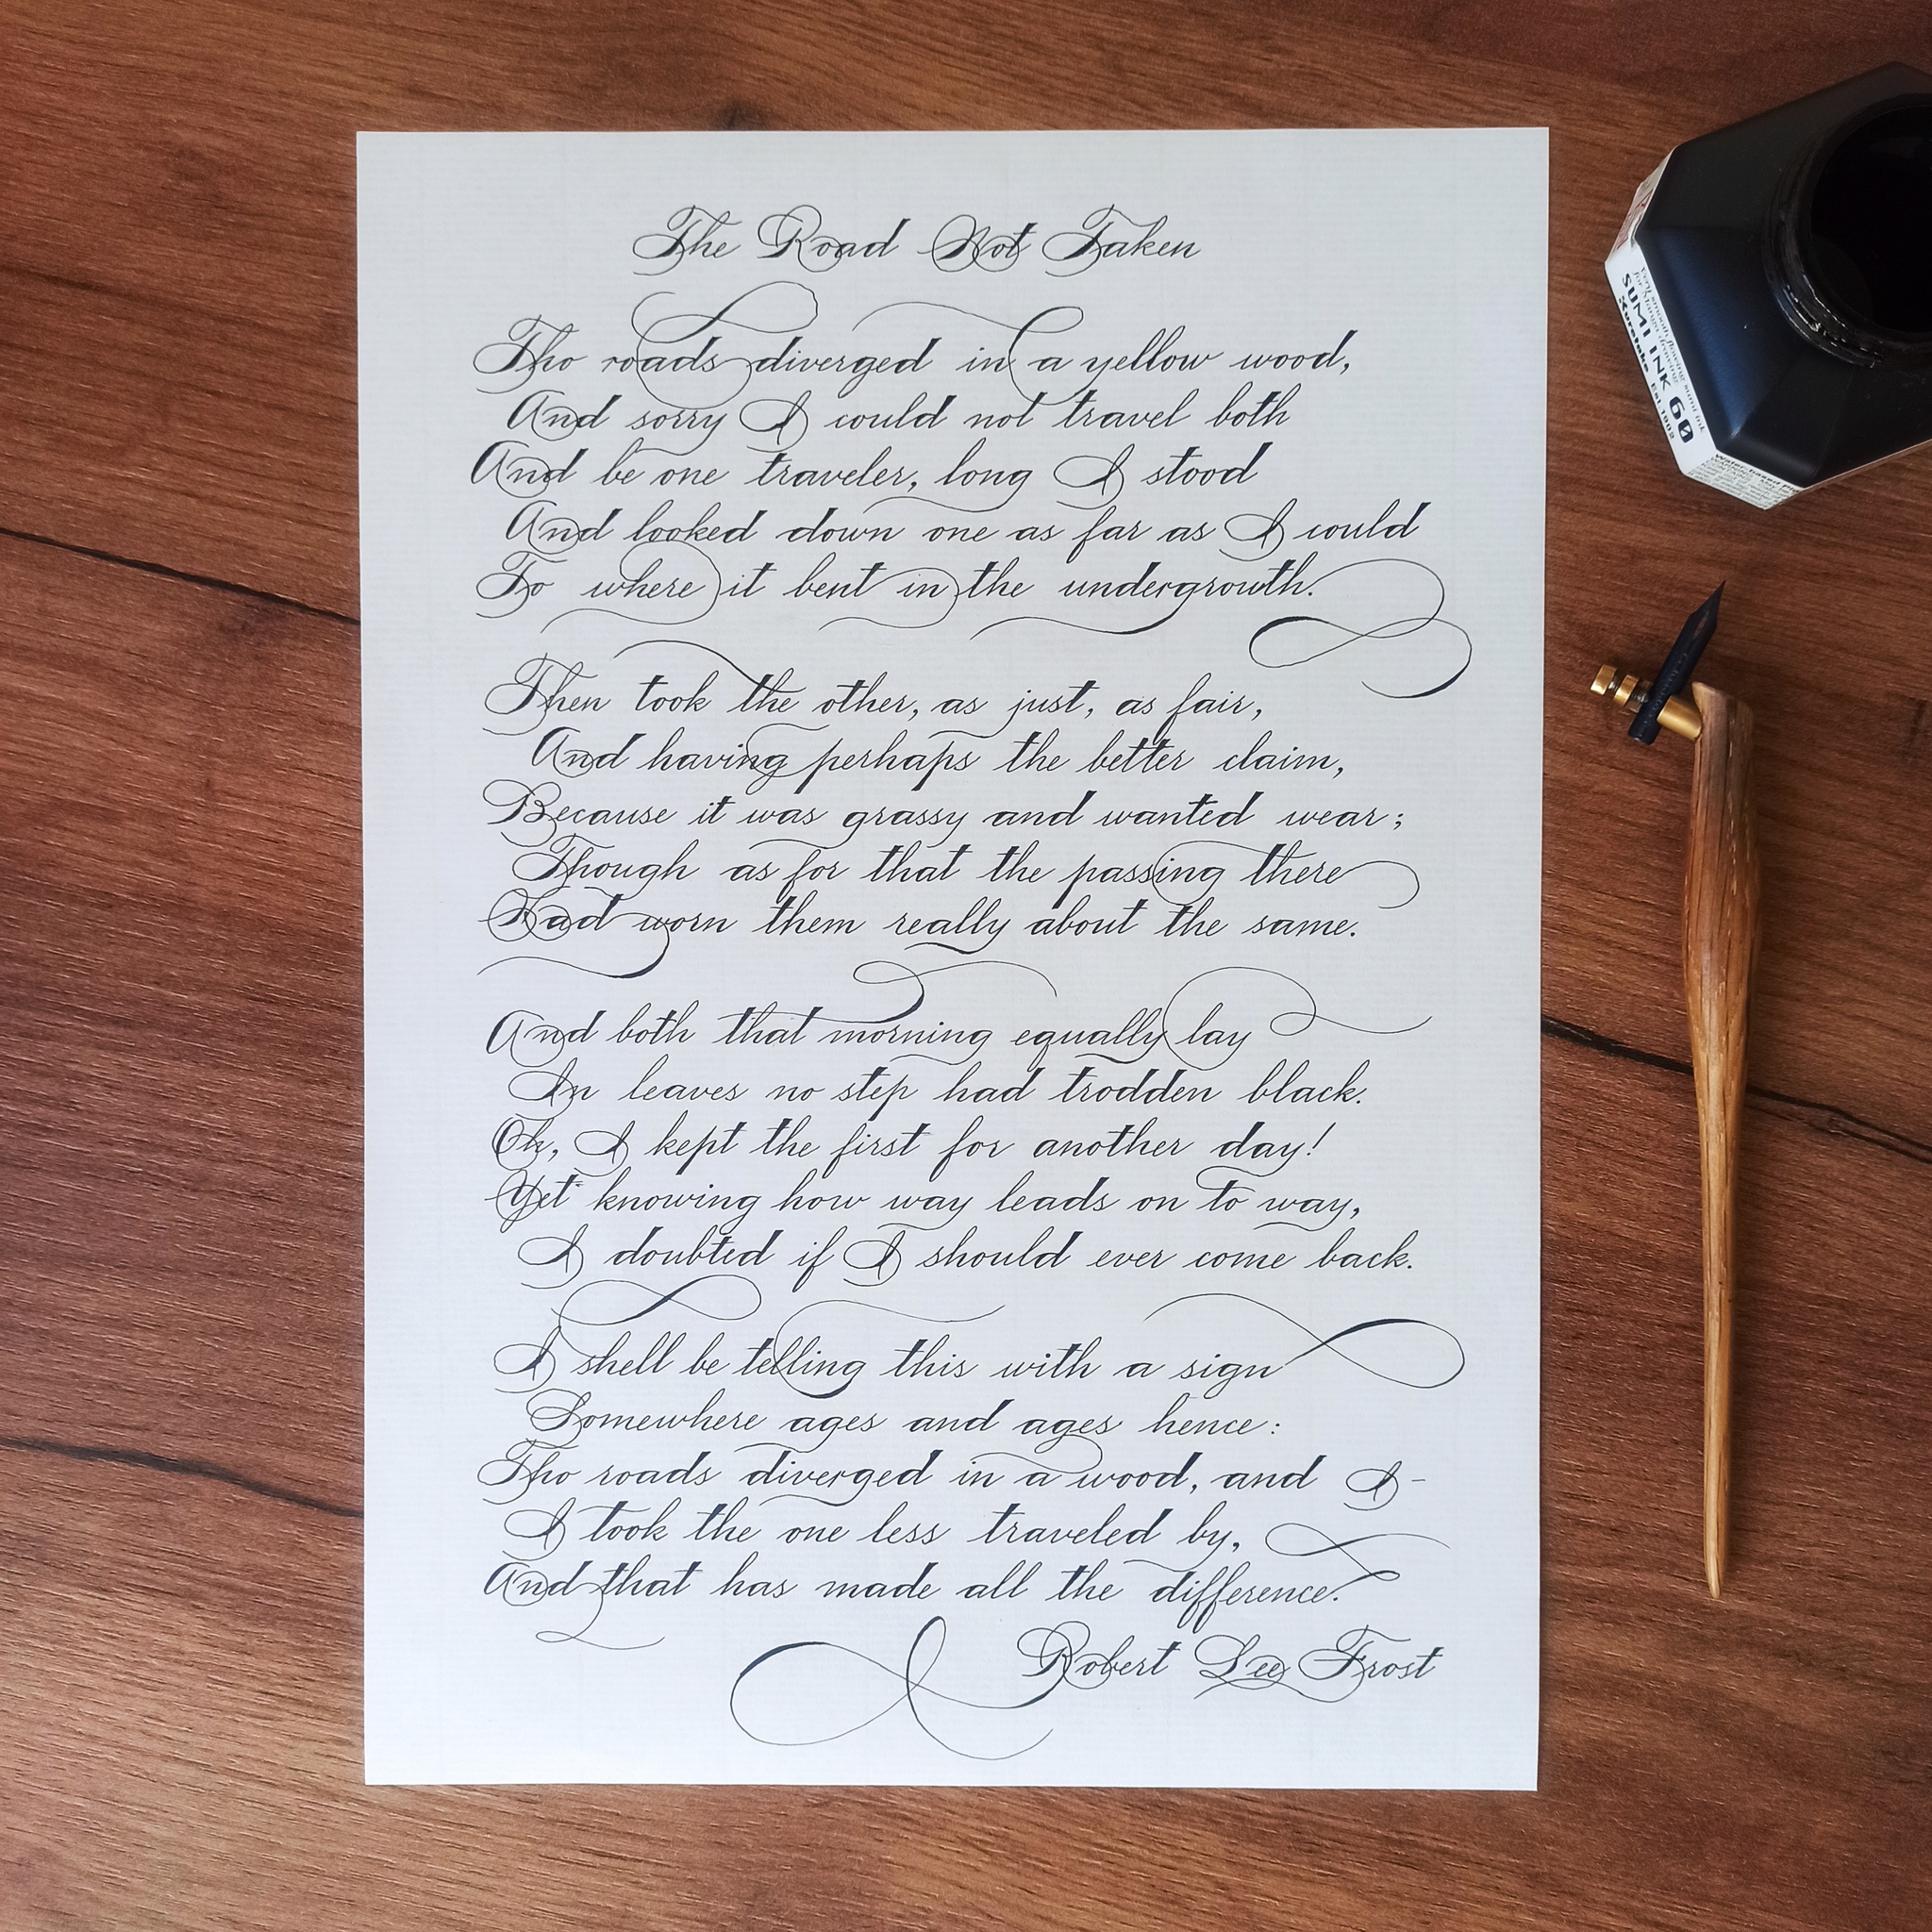 The Road Not Taken
Tho roads diverged in a yellow wood,
And sorry I could not travel both
And be one traveler, long I stood
And looked down one as far as I could
To where it bent in the undergrowth.
Then took the other, as just, as fair,
And having perhaps the better claim,
Because it was grassy and wanted wear;
Though as for that the passing there
Had worn them really about the same.
And both that morning equally lay
In leaves no step had trodden black.
Oh, I kept the first for another day!
Yet knowing how way leads on to way,
I doubted if I should ever come back.
I shell be telling this with a sign
Somewhere ages and ages hence:
Tho roads diverged in a wood, and I-
I took the one less traveled by,
And that has made all the difference.
Robert Lee Frost
SUMI INK 60
Kuretake Est.1902